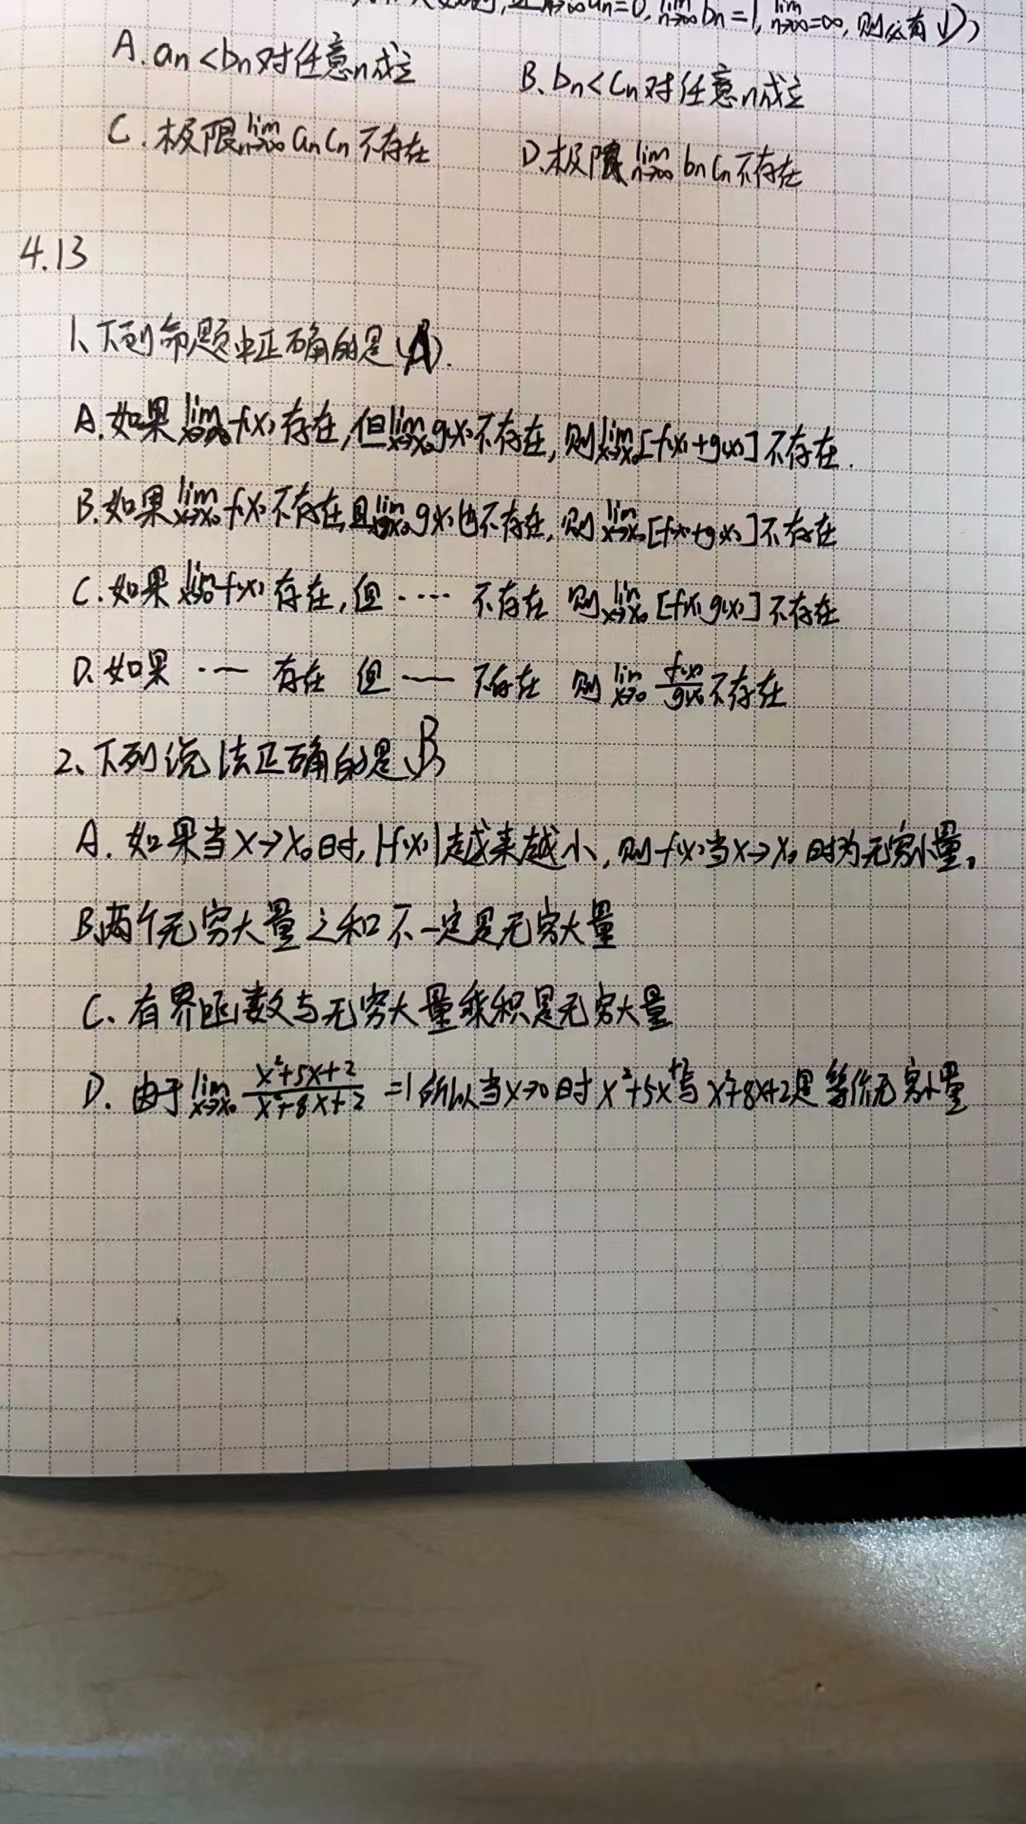 =0, lim n→∞ bn=1, lim n→∞ =∞, 则必有(D)
A. an<bn对任意n成立
B. bn<cn对任意n成立
C. 极限lim n→∞ an cn 不存在
D. 极限 lim n→∞ bn cn不存在
4.13
1、下列命题中正确的是(A).
A. 如果 lim x→x0 f(x) 存在,但lim x→x0 g(x)不存在,则lim x→x0 [f(x)+g(x)] 不存在.
B. 如果 lim x→x0 f(x)不存在且lim x→x0 g(x)也不存在,则 lim x→x0 [f(x)+g(x)]不存在
C. 如果 lim f(x) 存在,但 ···· 不存在 则lim x→x0 [f(x) g(x)] 不存在
D. 如果 ·— 存在 但 ·—— 不存在 则 lim x→0 f(x)/g(x) 不存在
2、下列说法正确的是(B)
A. 如果当x→x0时,|f(x)|越来越小,则f(x)当x→x0时为无穷小量。
B、两个无穷大量之和不一定是无穷大量
C、有界函数与无穷大量乘积是无穷大量
D. 由于 lim x→x0 (x²+5x+2)/(x²+8x+2) =1所以当x→0时 x²+5x+2与x²+8x+2是等价无穷小量